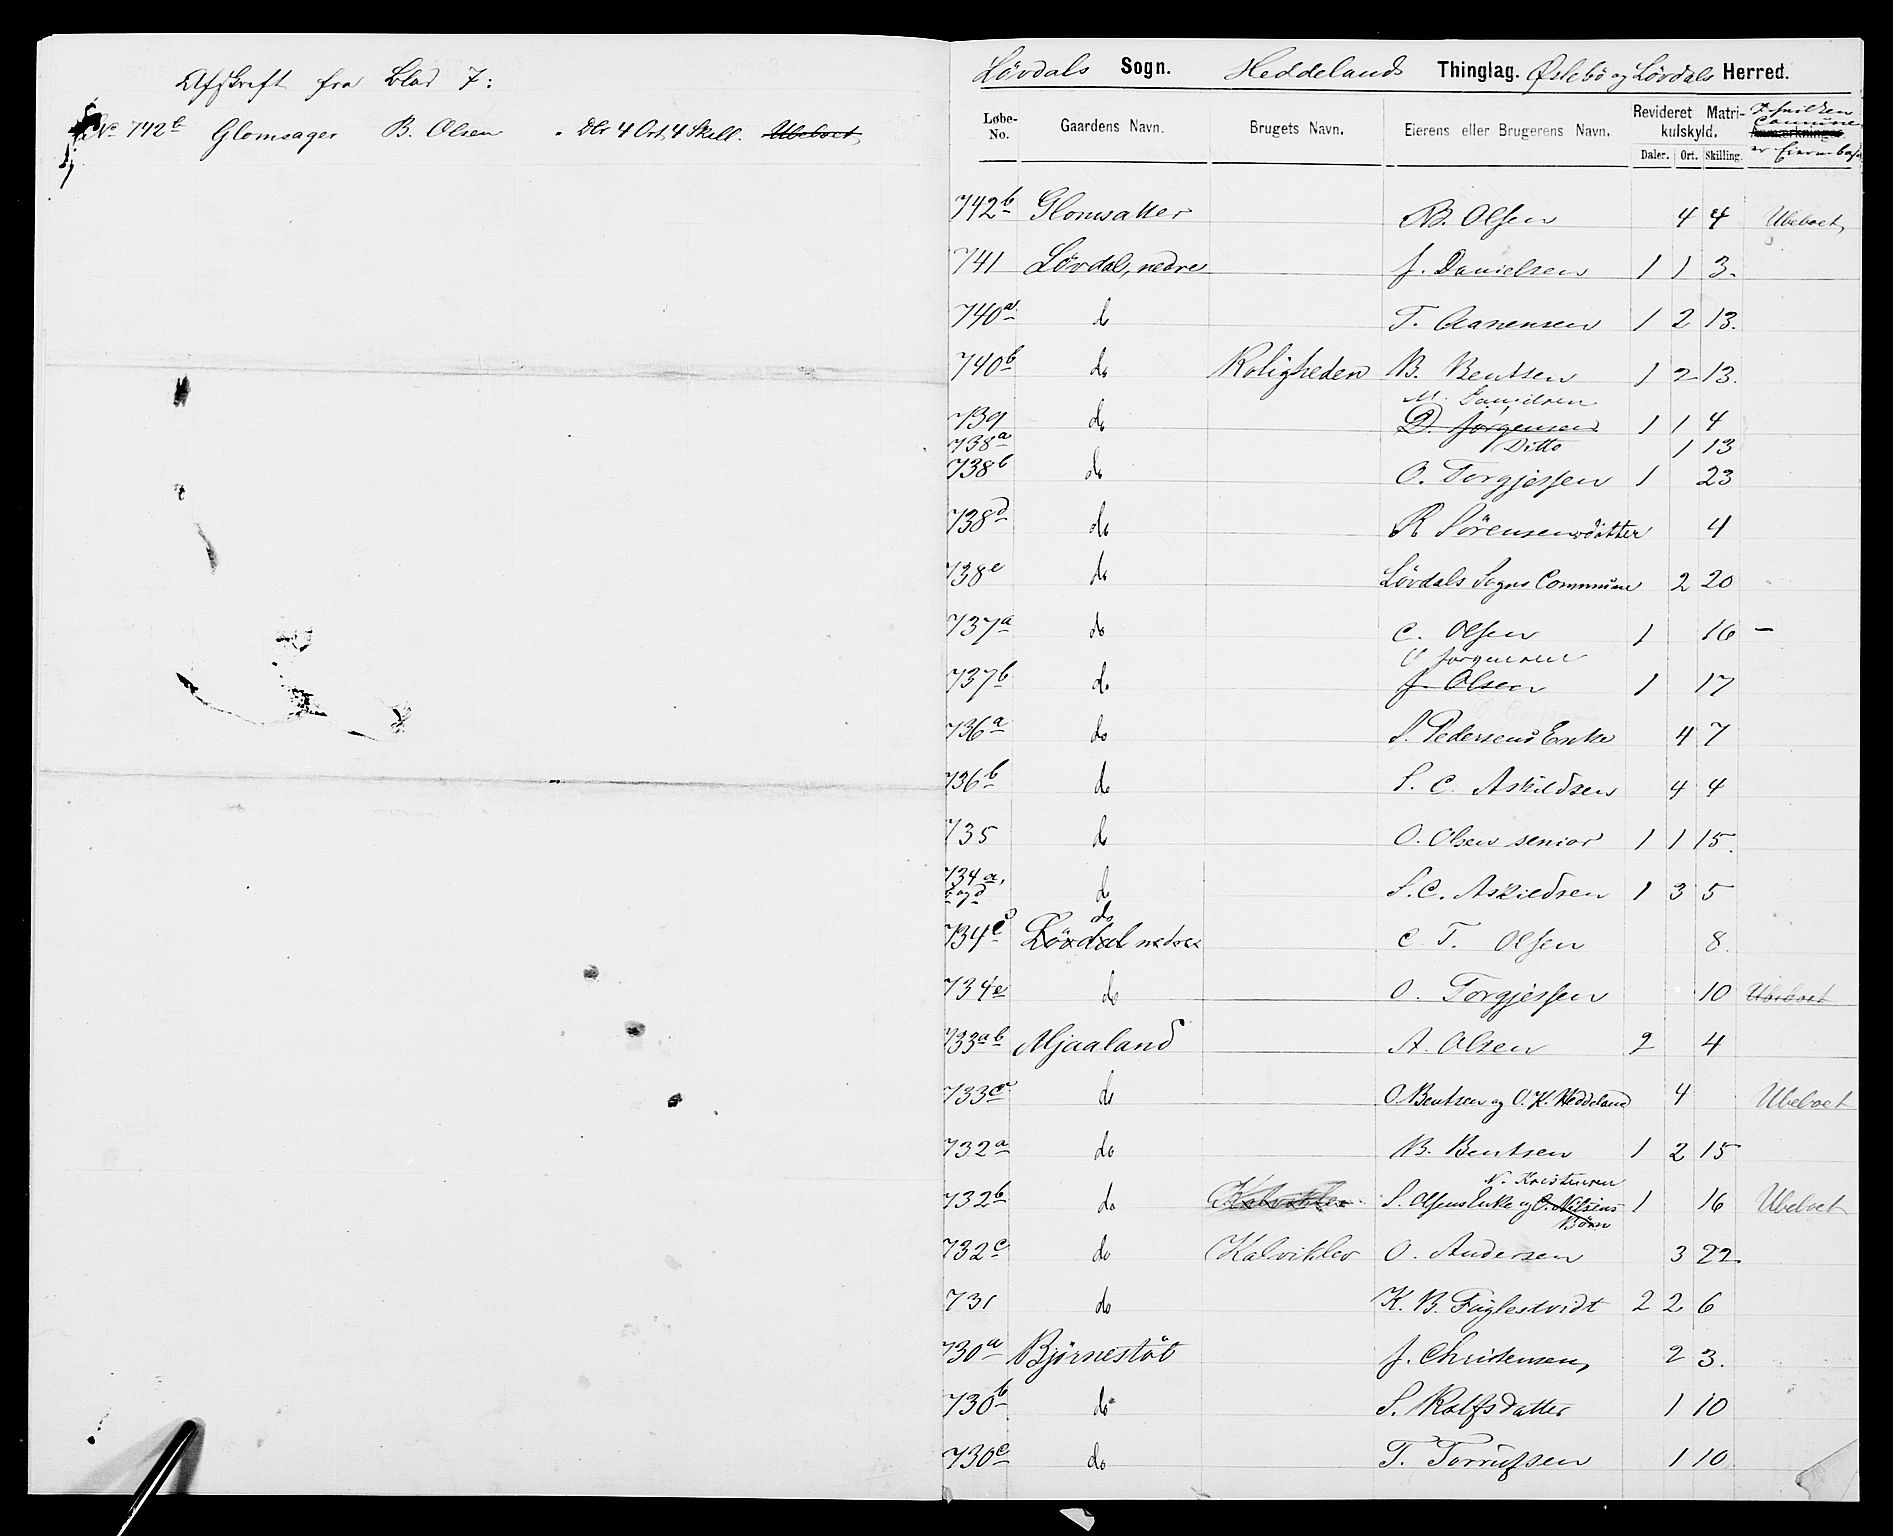 Afskrift fra Blad 7:
No 742b Glomsager B. Olsen " Dlr 4 Ort, 4 Skill. Ubeboet,
Lövdals Sogn. Heddelands Thinglag. Øslebö og Lövdals Herred.
Løbe-No. Gaardens Navn. Brugets Navn. Eierens eller Brugerens Navn. Revideret Matrikulskyld. Anmærkninger
Daler. Ort. Skilling. er Eieren
742b Glomsatter B. Olsen 4 4 Ubeboet,
741 Lövdal, nedre J. Danielsen 1 1 3.
740a do T. Aanensen 1 2 13.
740b do Roligheden B. Bentsen 1 2 13.
M. Danielsen
739 do D. Jørgensen 1 1 4
738a Ditto 1 13
738b do O. Torgjessen 1 23
738d do R Sörensensdatter 4
738e do Lövdals Sogns Commune 2 20
737a do C. Olsen 1 16 –
O Jørgensen
737b do J. Olsen 1 17
736a do S. Pedersens Enke 4 7
736b do S. C. Askildsen 4 4
735 do O. Olsen senior 1 1 15.
734a, b og d do S. C. Askildsen 1 3 5
do
734c Lövdal nedre C T. Olsen 8.
734e do O. Torgjessen 10 Ubeboet
733ab Mjaaland A. Olsen 2 4
733c do O. Bentsen og O. K. Heddeland 4 Ubeboet
732a do B. Bentsen 1 2 15
N. Kristensen
732b do Kalviklev S. Olsens Enke og O. Nilsens Börn 1 16 Ubeboet
732c do Kalviklev O. Andersen 3 22
731 do K. B. Fuglestvidt 2 2 6
730a Björnestöl J. Christensen, 2 3.
730b do S. Rolfsdatter 1 10
730c do T. Torrufsen 1 10